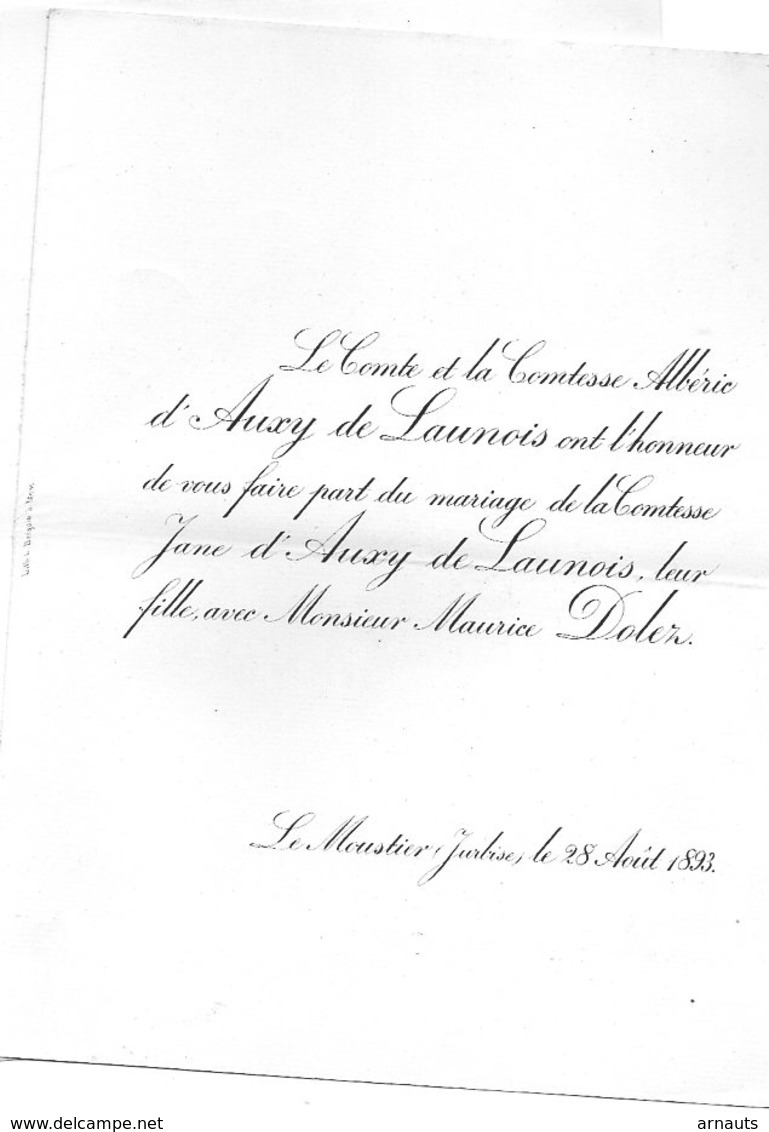 Le Comte et la Comtesse Albéric
d'Auxy de Launois ont l'honneur
de vous faire part du mariage de la Comtesse
Jane d'Auxy de Launois, leur
fille, avec Monsieur Maurice Dolez.
Le Moustier (Jurbise) le 28 Août 1893.
www.delcampe.net
arnauts